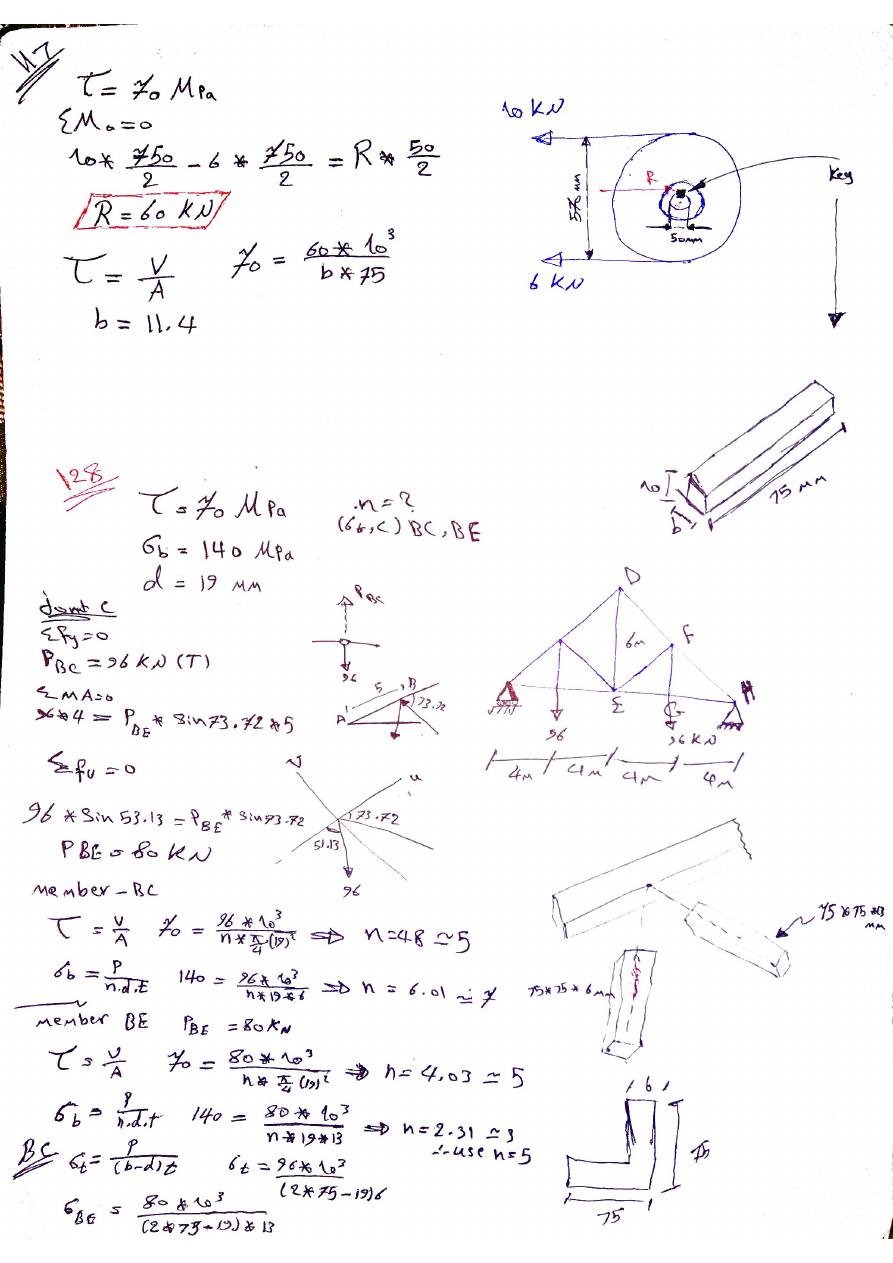 117
τ = 70 MPa
ΣMo = 0
10* 750/2 - 6 * 750/2 = R * 50/2
R = 60 KN
τ = V/A   70 = 60*10³/b*75
b = 11.4
10 KN
570 mm
R
50mm
6 KN
Key
10
b
75 mm
128
τ = 70 MPa   n = ?
σb = 140 MPa   (σt,c) BC, BE
d = 19 mm
Joint C
Σfy = 0
PBC = 96 KN (T)
ΣMA=0
96*4 = PBE * Sin73.72 *5
Σfv = 0
96 * Sin 53.13 = PBE * Sin73.72
PBE = 80 KN
PBC
96
A
5
B
73.72
V
u
73.72
51.13
96
D
6m
F
E
G
H
96
96 KN
4m 4m 4m 4m
member - BC
τ = V/A   70 = 96*10³/n*π/4(19)² ⇒ n=48 ≃ 5
σb = P/n.d.t   140 = 96*10³/n*19*6 ⇒ n = 6.01 ≃ 7
75*75*13 mm
75*75*6 mm
member BE   PBE = 80KN
τ = V/A   70 = 80*10³/n*π/4(19)² ⇒ n= 4.03 ≃ 5
σb = P/n.d.t   140 = 80*10³/n*19*13 ⇒ n=2.31 ≃ 3
∴ use n=5
BC σt = P/(b-d)t   σt = 96*10³/(2*75-19)6
σBE = 80*10³/(2*75-19)*13
6
75
75